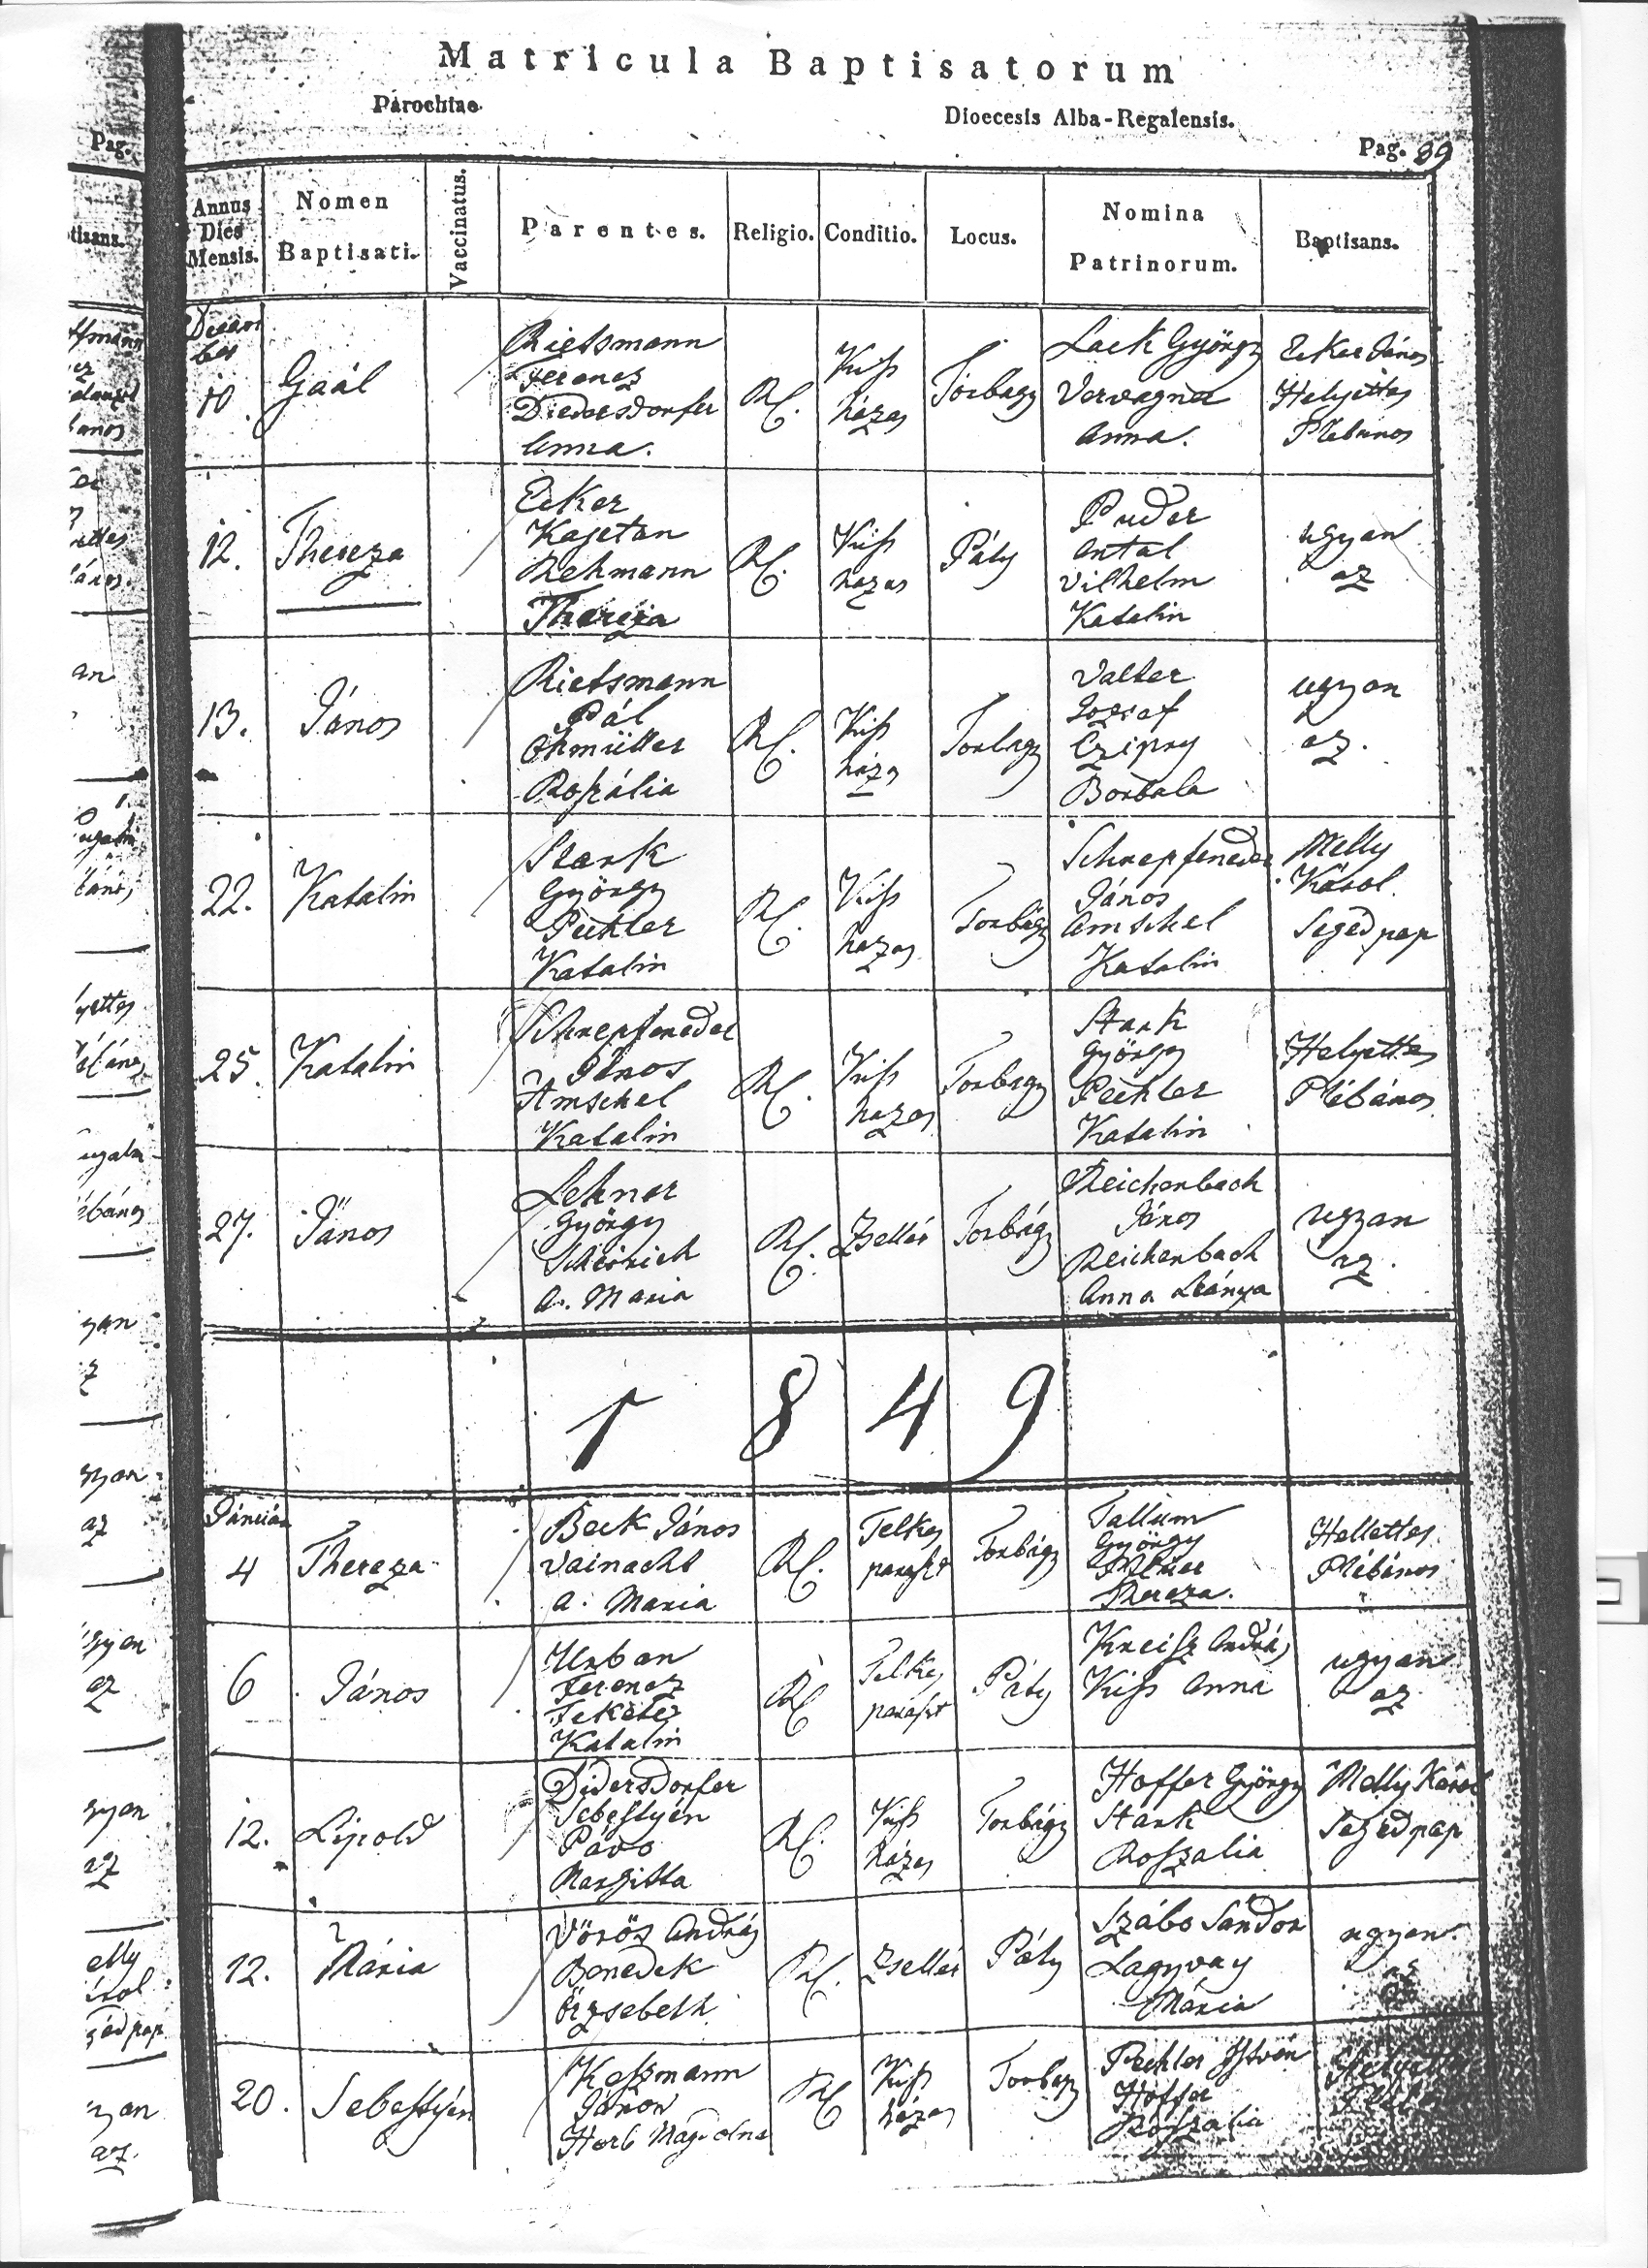 Matricula Baptisatorum
Parochiae
Dioecesis Alba-Regalensis.
Pag.
Pag. 89
Annus Dies Mensis.
Nomen Baptisati.
Vaccinatus.
Parentes.
Religio.
Conditio.
Locus.
Nomina Patrinorum.
Baptisans.
Decem
ber
10
Gaál
Rietsmann
Ferencz
Diedersdorfer
Anna.
RC.
Kiss
házas
Torbágy
Lack György
Vervagner
Anna.
Ecker János
Helyettes
Plébános
12.
Thereza
Ecker
Kajetan
Rehmann
Thereza
RC.
Kiss
hazas
Páty
Puder
Antal
Vilhelm
Katalin
ugyan
az
13.
János
Rietsmann
Pál
Ohmüller
Rosália
RC.
Kiss
házas
Torbágy
Valter
Jozsef
Czipry
Borbala
ugyan
az.
22.
Katalin
Stark
György
Pechler
Katalin
RC.
Kiss
hazas
Torbágy
Schrepfeneder
János
Amschel
Katalin
Melly
Károl
Segéd pap
25.
Katalin
Schrepfeneder
János
Amschel
Katalin
RC.
Kiss
hazas
Torbagy
Stark
György
Pechler
Katalin
Helyettes
Plébános
27.
János
Lehner
György
Scheirich
A. Maria
RC.
Zsellér
Torbágy
Reichenbach
János
Reichenbach
Anna Leánya
ugyan
az.
1849
Január
4
Thereza
Beck János
Vainacht
A. Maria
RC.
Telkes
paraszt
Torbágy
Tallum
György
Thereza.
Hellettes
Plébános
6
János
Urban
Ferencz
Fekete
Katalin
RC
Telkes
paraszt
Páty
Kreisz András
Kiss Anna
ugyan
az
12.
Lipold
Didersdorfer
Sebestyén
Pávo
Margitta
RC.
Kiss
házas
Torbágy
Hoffer György
Stark
Roszalia
Melly Károl
Segéd pap
12.
Mária
Vörös András
Benedek
Örzsebeth
RC.
Zsellér
Páty
Szábo Sándor
Lagyvay
Mária
ugyan
az
20.
Sebestyén
Keszmann
János
Horb Magdolna
RC
Kiss
házas
Torbagy
Pechler István
Hoffer
Rószalia